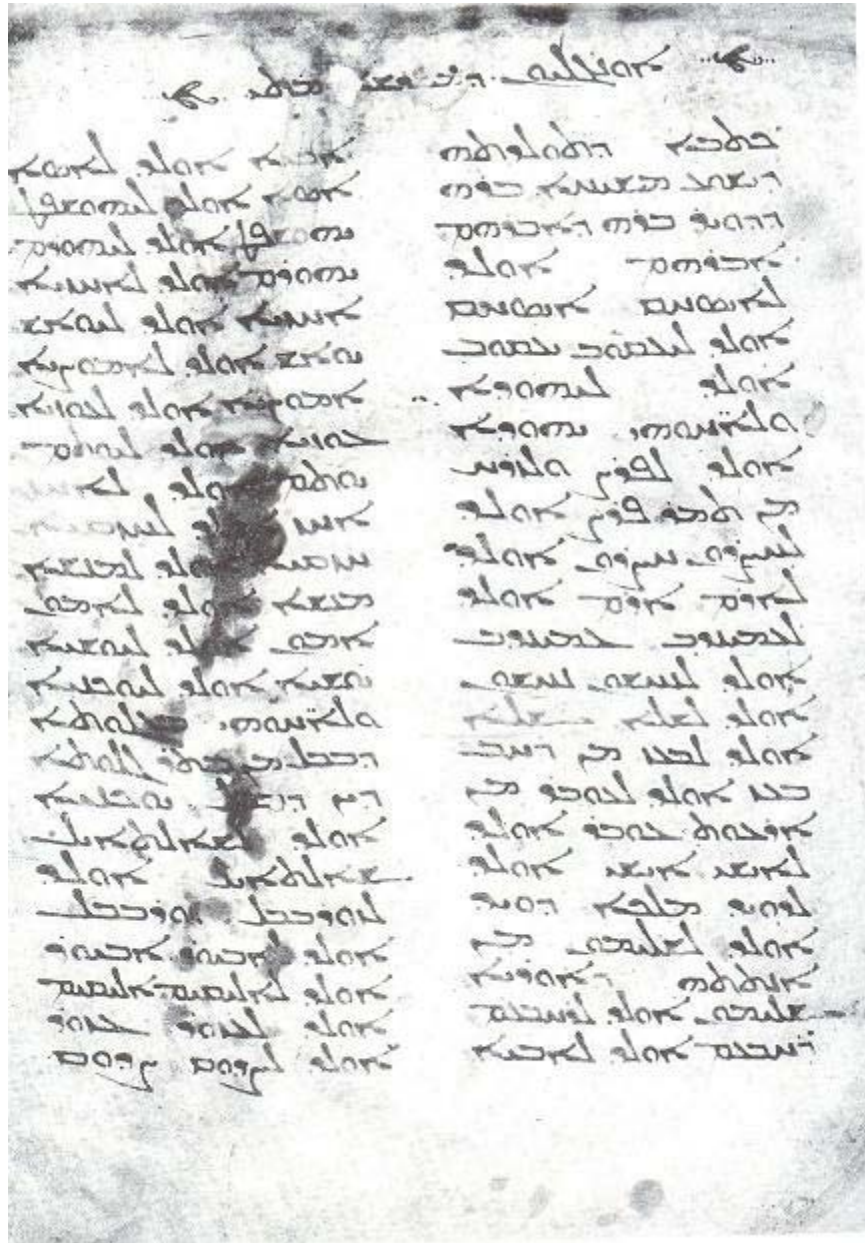 ܐܘܢܓܠܝܘܢ ܕܡܦܪܫܐ ܡܬܝ
ܟܬܒܐ ܕܬܘܠܕܬܗ
ܕܝܫܘܥ ܡܫܝܚܐ ܒܪܗ
ܕܕܘܝܕ ܒܪܗ ܕܐܒܪܗܡ
ܐܒܪܗܡ ܐܘܠܕ
ܠܐܝܣܚܩ ܐܝܣܚܩ
ܐܘܠܕ ܠܝܥܩܘܒ ܝܥܩܘܒ
ܐܘܠܕ ܠܝܗܘܕܐ
ܘܠܐܚ̈ܘܗܝ ܝܗܘܕܐ
ܐܘܠܕ ܠܦܪܨ ܘܠܙܪܚ
ܡܢ ܬܡܪ ܦܪܨ ܐܘܠܕ
ܠܚܨܪܘܢ ܚܨܪܘܢ ܐܘܠܕ
ܠܐܪܡ ܐܪܡ ܐܘܠܕ
ܠܥܡܝܢܕܒ ܥܡܝܢܕܒ
ܐܘܠܕ ܠܢܚܫܘܢ ܢܚܫܘܢ
ܐܘܠܕ ܠܫܠܐ ܫܠܐ
ܐܘܠܕ ܠܒܥܙ ܡܢ ܪܚܒ
ܒܥܙ ܐܘܠܕ ܠܥܘܒܪ ܡܢ
ܐܪܥܘܬ ܥܘܒܪ ܐܘܠܕ
ܠܐܝܫܝ ܐܝܫܝ ܐܘܠܕ
ܠܕܘܝܕ ܡܠܟܐ ܕܘܝܕ
ܐܘܠܕ ܠܫܠܝܡܘܢ ܡܢ
ܐܢܬܬܗ ܕܐܘܪܝܐ
ܫܠܝܡܘܢ ܐܘܠܕ ܠܪܚܒܥܡ
ܪܚܒܥܡ ܐܘܠܕ ܠܐܒܝܐ
ܐܒܝܐ ܐܘܠܕ ܠܐܣܐ
ܐܣܐ ܐܘܠܕ ܠܝܗܘܫܦܛ
ܝܗܘܫܦܛ ܐܘܠܕ ܠܝܗܘܪܡ
ܝܗܘܪܡ ܐܘܠܕ ܠܐܚܙܝܐ
ܐܚܙܝܐ ܐܘܠܕ ܠܝܘܐܫ
ܝܘܐܫ ܐܘܠܕ ܠܐܡܘܨܝܐ
ܐܡܘܨܝܐ ܐܘܠܕ ܠܥܘܙܝܐ
ܥܘܙܝܐ ܐܘܠܕ ܠܝܘܬܡ
ܝܘܬܡ ܐܘܠܕ ܠܐܚܙ
ܐܚܙ ܐܘܠܕ ܠܚܙܩܝܐ
ܚܙܩܝܐ ܐܘܠܕ ܠܡܢܫܐ
ܡܢܫܐ ܐܘܠܕ ܠܐܡܘܢ
ܐܡܘܢ ܐܘܠܕ ܠܝܘܫܝܐ
ܝܘܫܝܐ ܐܘܠܕ ܠܝܘܟܢܝܐ
ܘܠܐܚ̈ܘܗܝ ܒܓܠܘܬܐ
ܕܒܒܠ ܡܢ ܒܬܪ ܓܠܘܬܐ
ܕܝܢ ܕܒܒܠ ܝܘܟܢܝܐ
ܐܘܠܕ ܠܫܐܠܬܐܝܠ
ܫܐܠܬܐܝܠ ܐܘܠܕ
ܠܙܘܪܒܒܠ ܙܘܪܒܒܠ
ܐܘܠܕ ܠܐܒܝܘܪ ܐܒܝܘܪ
ܐܘܠܕ ܠܐܠܝܩܝܡ ܐܠܝܩܝܡ
ܐܘܠܕ ܠܥܙܘܪ ܥܙܘܪ
ܐܘܠܕ ܠܙܕܘܩ ܙܕܘܩ